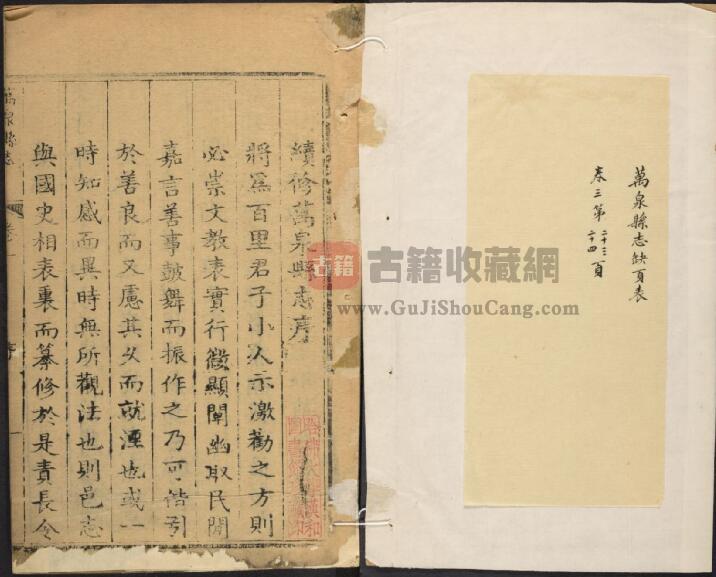 萬泉縣志缺頁表
卷三第二十三二十四頁
續修萬泉縣志序
將為百里君子小人示激勸之方則
必崇文教表實行微顯闡幽取民間
嘉言善事鼓舞而振作之乃可偕引
於善良而又慮其久而就湮也或一
時知感而異時無所觀法也則邑志
與國史相表裏而纂修於是責長令
萬泉縣志
卷一
序
古籍
古籍收藏網
www.GuJiShouCang.com
哈佛大學漢和圖書館珍藏印